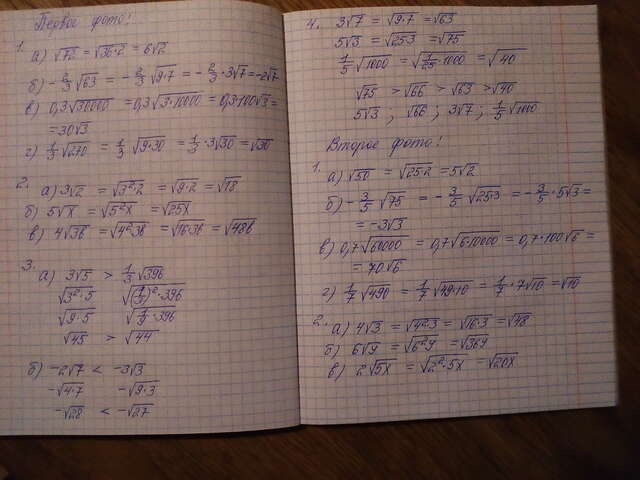 Первое фото!
1.
а) √72 = √36·2 = 6√2
б) -2/3 √63 = -2/3 √9·7 = -2/3 · 3√7 = -2√7
в) 0,3√30000 = 0,3√3·10000 = 0,3·100√3 =
= 30√3
г) 1/3 √270 = 1/3 √9·30 = 1/3 · 3√30 = √30
2.
а) 3√2 = √3²·2 = √9·2 = √18
б) 5√x = √5²x = √25x
в) 4√3b = √4²·3b = √16·3b = √48b
3.
а) 3√5 > 1/3 √396
√3²·5 √(1/3)²·396
√9·5 √1/9·396
√45 > √44
б) -2√7 < -3√3
-√4·7 -√9·3
-√28 < -√27
4. 3√7 = √9·7 = √63
5√3 = √25·3 = √75
1/5 √1000 = √1/25·1000 = √40
√75 > √66 > √63 > √40
5√3 ; √66 ; 3√7 ; 1/5 √1000
Второе фото!
1.
а) √50 = √25·2 = 5√2
б) -3/5 √75 = -3/5 √25·3 = -3/5 · 5√3 =
= -3√3
в) 0,7√60000 = 0,7√6·10000 = 0,7·100√6 =
= 70√6
г) 1/7 √490 = 1/7 √49·10 = 1/7 · 7√10 = √10
2. а) 4√3 = √4²·3 = √16·3 = √48
б) 6√y = √6²y = √36y
в) 2√5x = √2²·5x = √20x